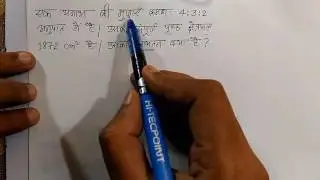 एक घनाभ की भुजाएँ क्रमशः 4:3:2
अनुपात में है। उसके पृष्ठ क्षेत्रफल
1872 cm² है। उसका क्या है ?
HI-TECPOINT